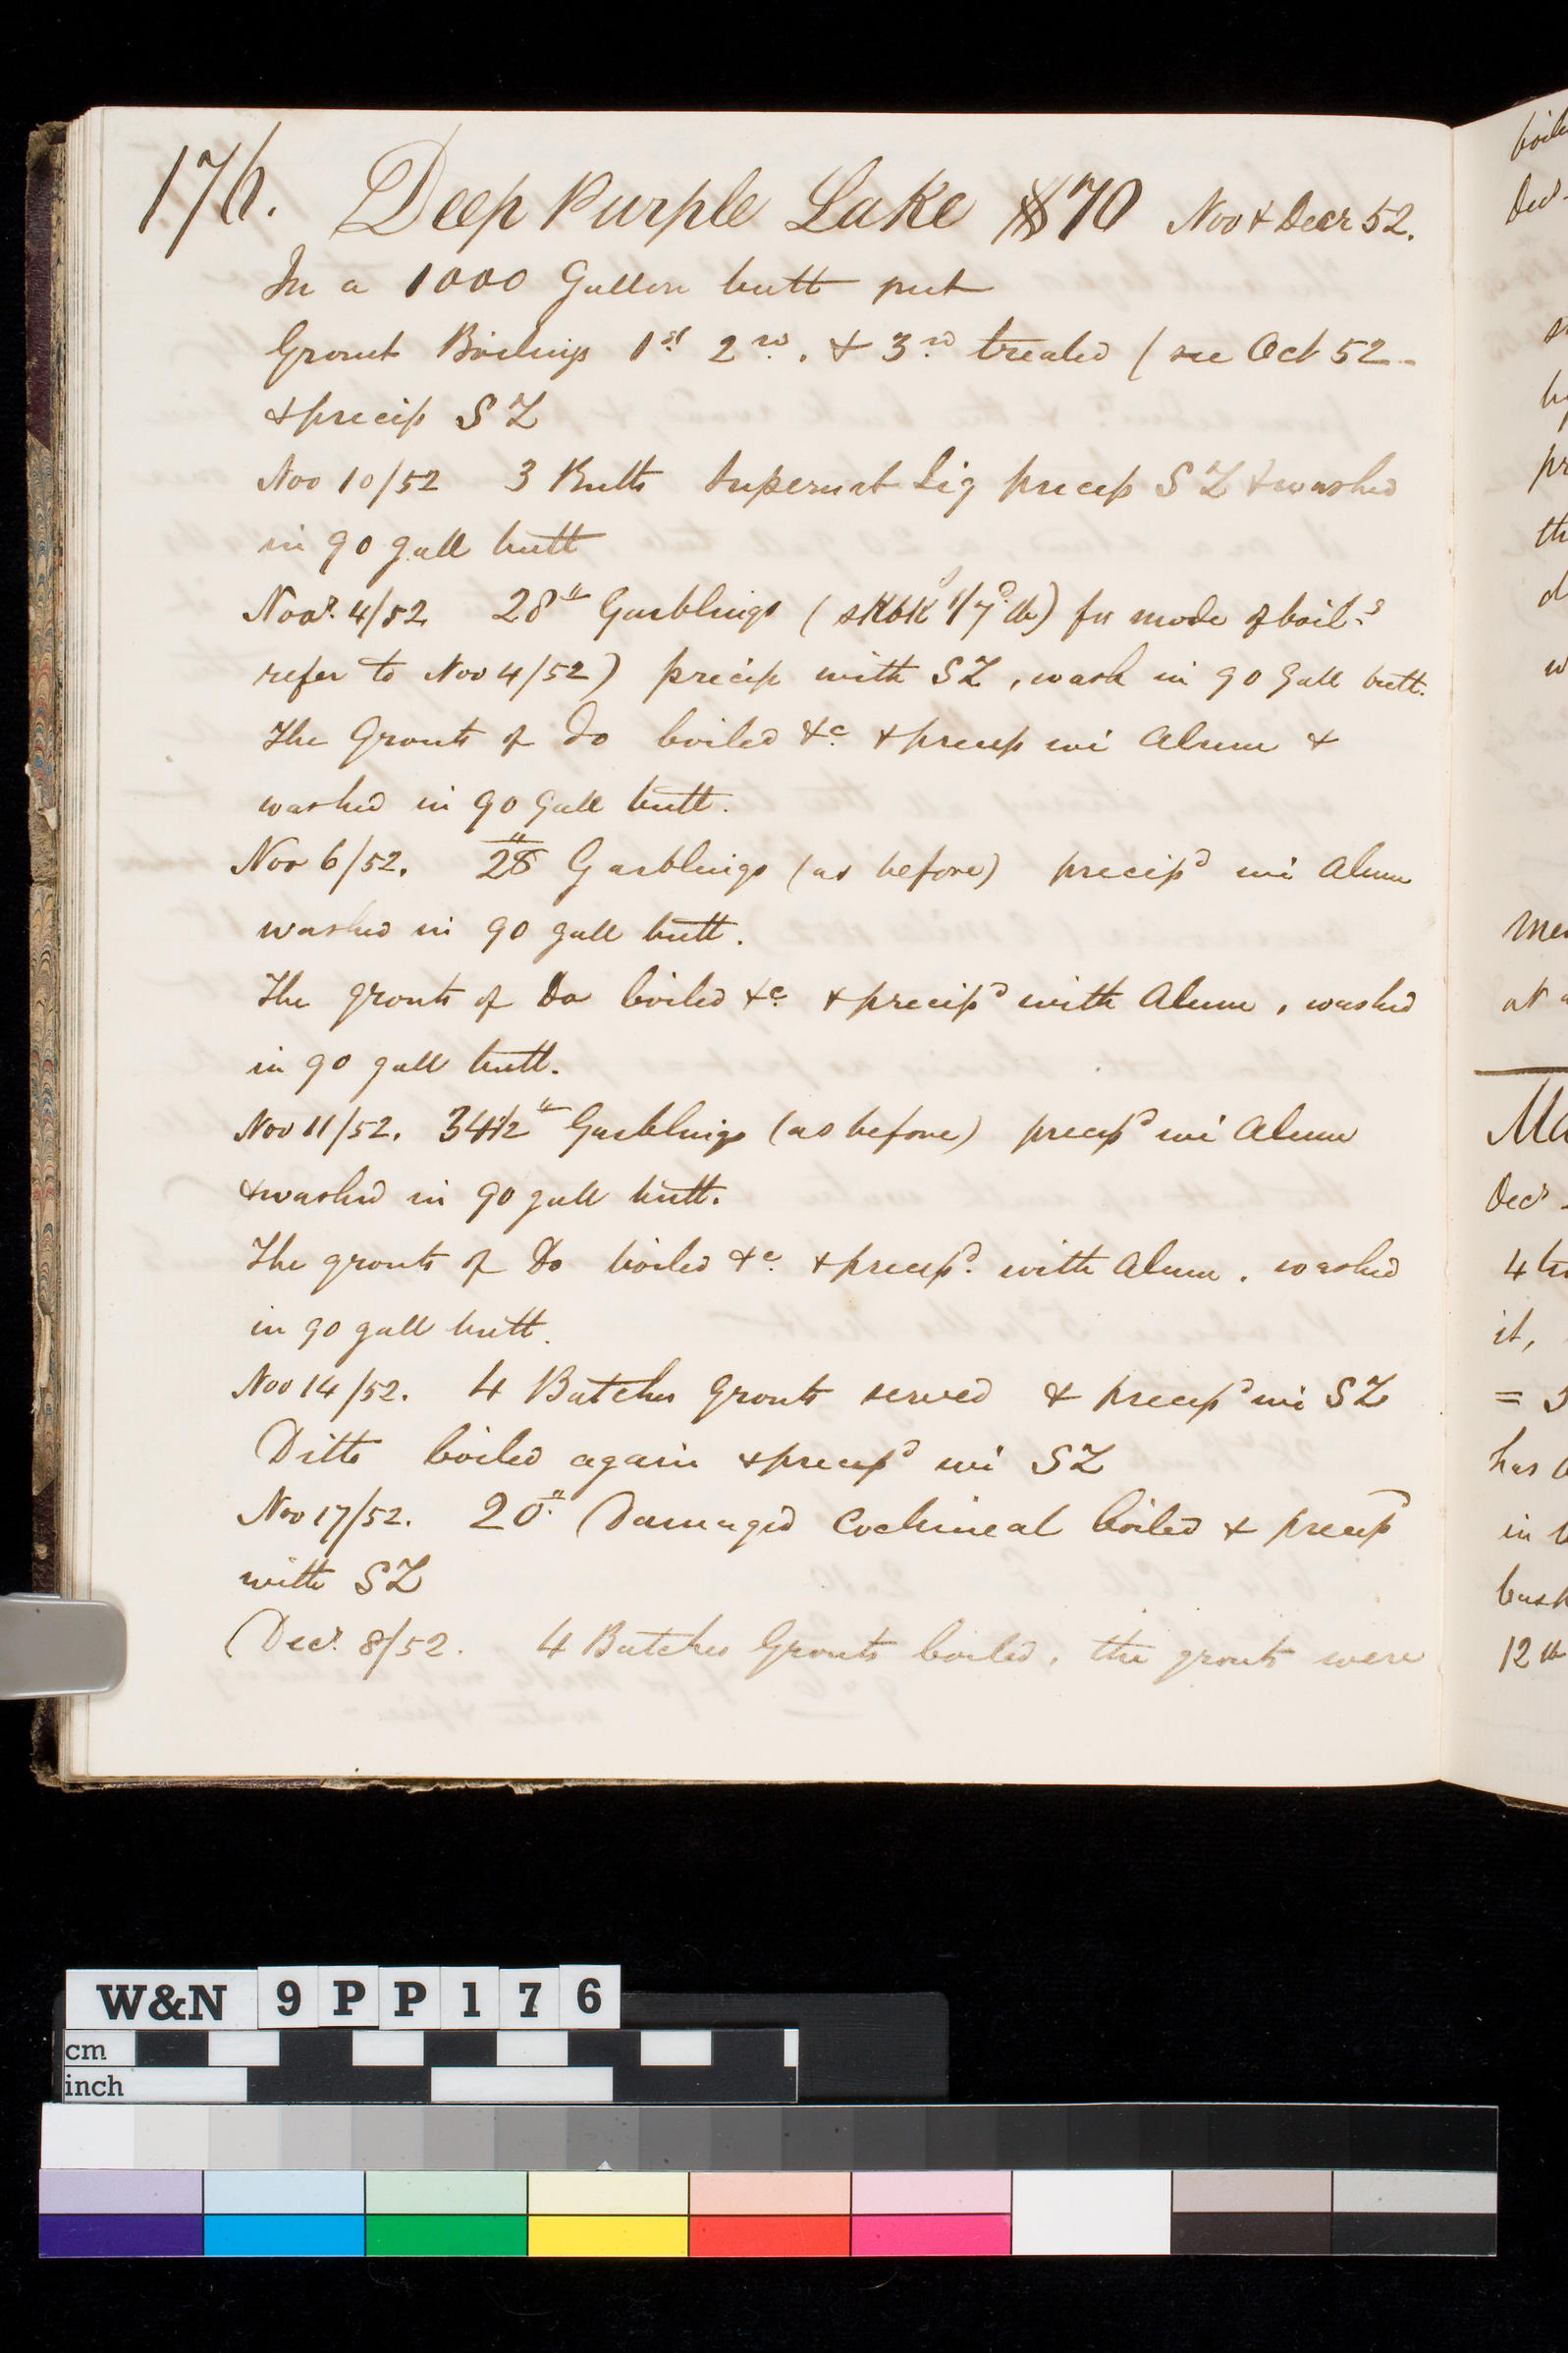 176. Deep Purple Lake 70 Nov & Decr 52.
In a 1000 Gallon butt put
Grout Boilings 1st 2nd. & 3rd treated (see Oct 52 -
& precip SZ
Nov 10/52 3 Butts Supernat Liq precip SZ & washed
in 90 gall butt
Novr. 4/52 28 lb Garblings ( for mode of boilgs
refer to Nov 4/52) precip with SZ, wash in 90 Gall butt.
The Grouts of Do boiled &c & precip wi Alum &
washed in 90 Gall butt.
Nov 6/52. 28 " Garblings (as before) precipd wi Alum
washed in 90 gall butt.
The grouts of Do boiled &c & precipd with Alum, washed
in 90 gall butt.
Nov 11/52. 34 1/2 " Garblings (as before) precipd wi Alum
& washed in 90 gall butt.
The grouts of Do boiled &c. & precipd. with Alum. washed
in 90 gall butt.
Nov 14/52. 4 Batches Grouts served & precipd wi SZ
Ditto boiled again & precipd wi SZ
Nov 17/52. 20 " Damaged Cochineal boiled & precipd
with SZ
Decr. 8/52. 4 Batches Grouts boiled, the grouts were
boil
Decr
th
at
Ma
Decr
4
it,
=
has
in
12
W&N 9PP176
cm
inch